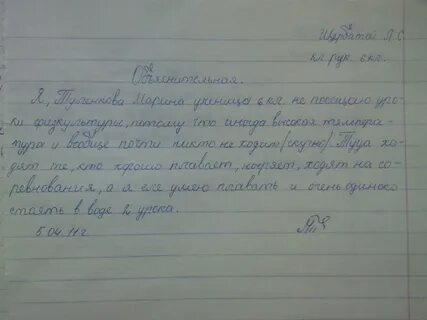 Щербатой Л.С.
кл. рук. 6 кл.
Объяснительная.
Я, Туленкова Марина ученица 6 кл не посещаю уро-
ки физкультуры, потому что иногда высокая темпера-
тура и вообще почти никто не ходит (скучно). Туда хо-
дят те, кто хорошо плавает, ныряет, ходят на со-
ревнования, а я еле умею плавать и очень одиноко
стоять в воде 2 урока.
5.04.11г